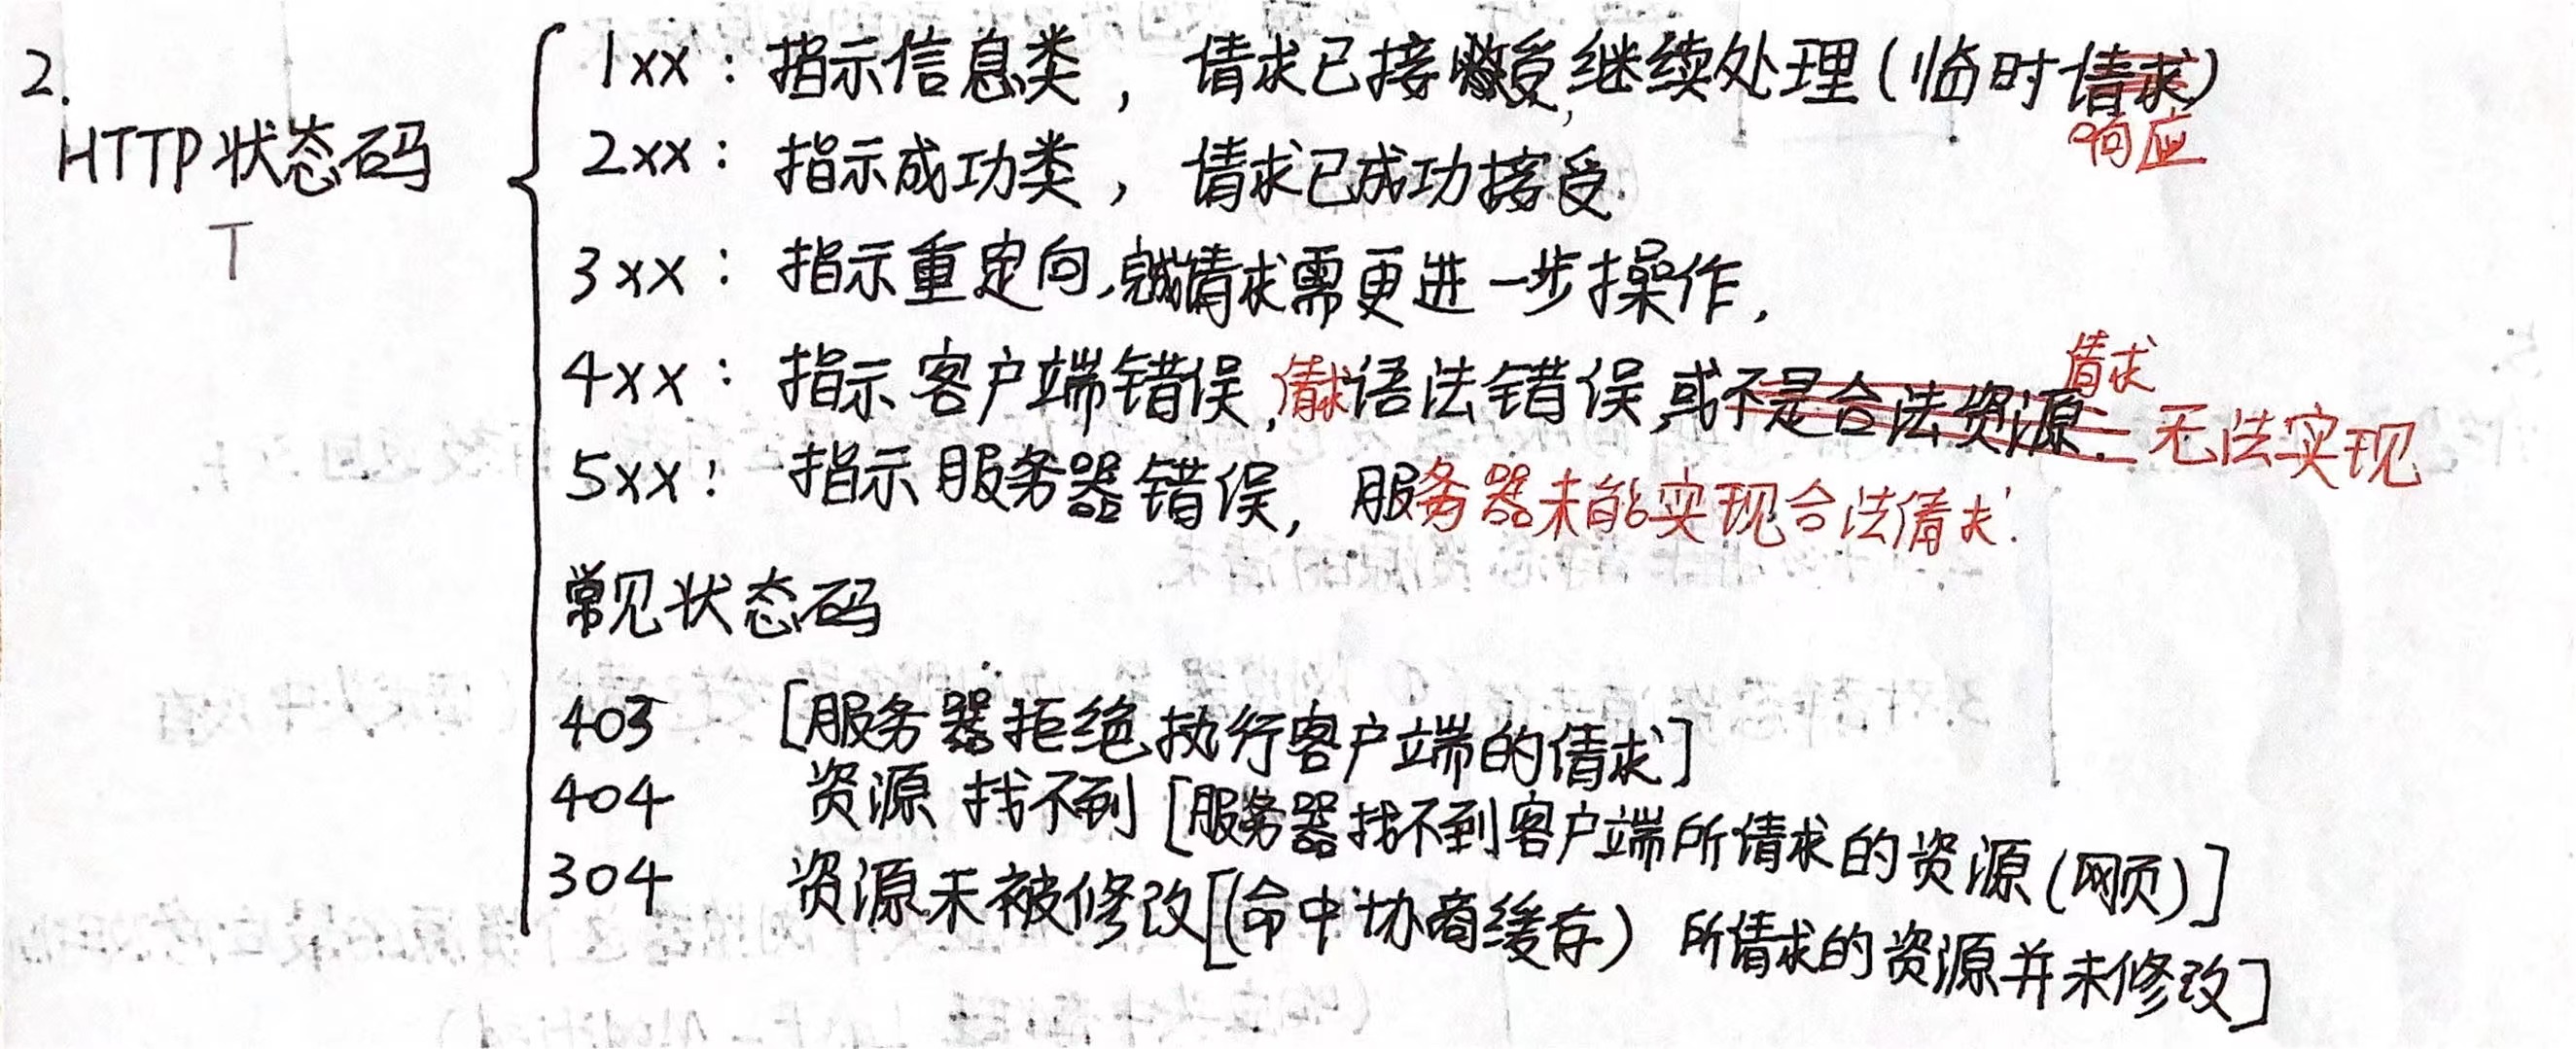 2.
HTTP状态码
T
1xx：指示信息类，请求已接受，继续处理(临时请求)
响应
2xx：指示成功类，请求已成功接受.
3xx：指示重定向，完成请求需更进一步操作，
请求
4xx：指示客户端错误，请求语法错误，或不是合法资源. 无法实现
5xx：指示服务器错误，服务器未能实现合法请求.
常见状态码
403 [服务器拒绝执行客户端的请求]
404 资源找不到[服务器找不到客户端所请求的资源(网页)]
304 资源未被修改[(命中协商缓存) 所请求的资源并未修改]